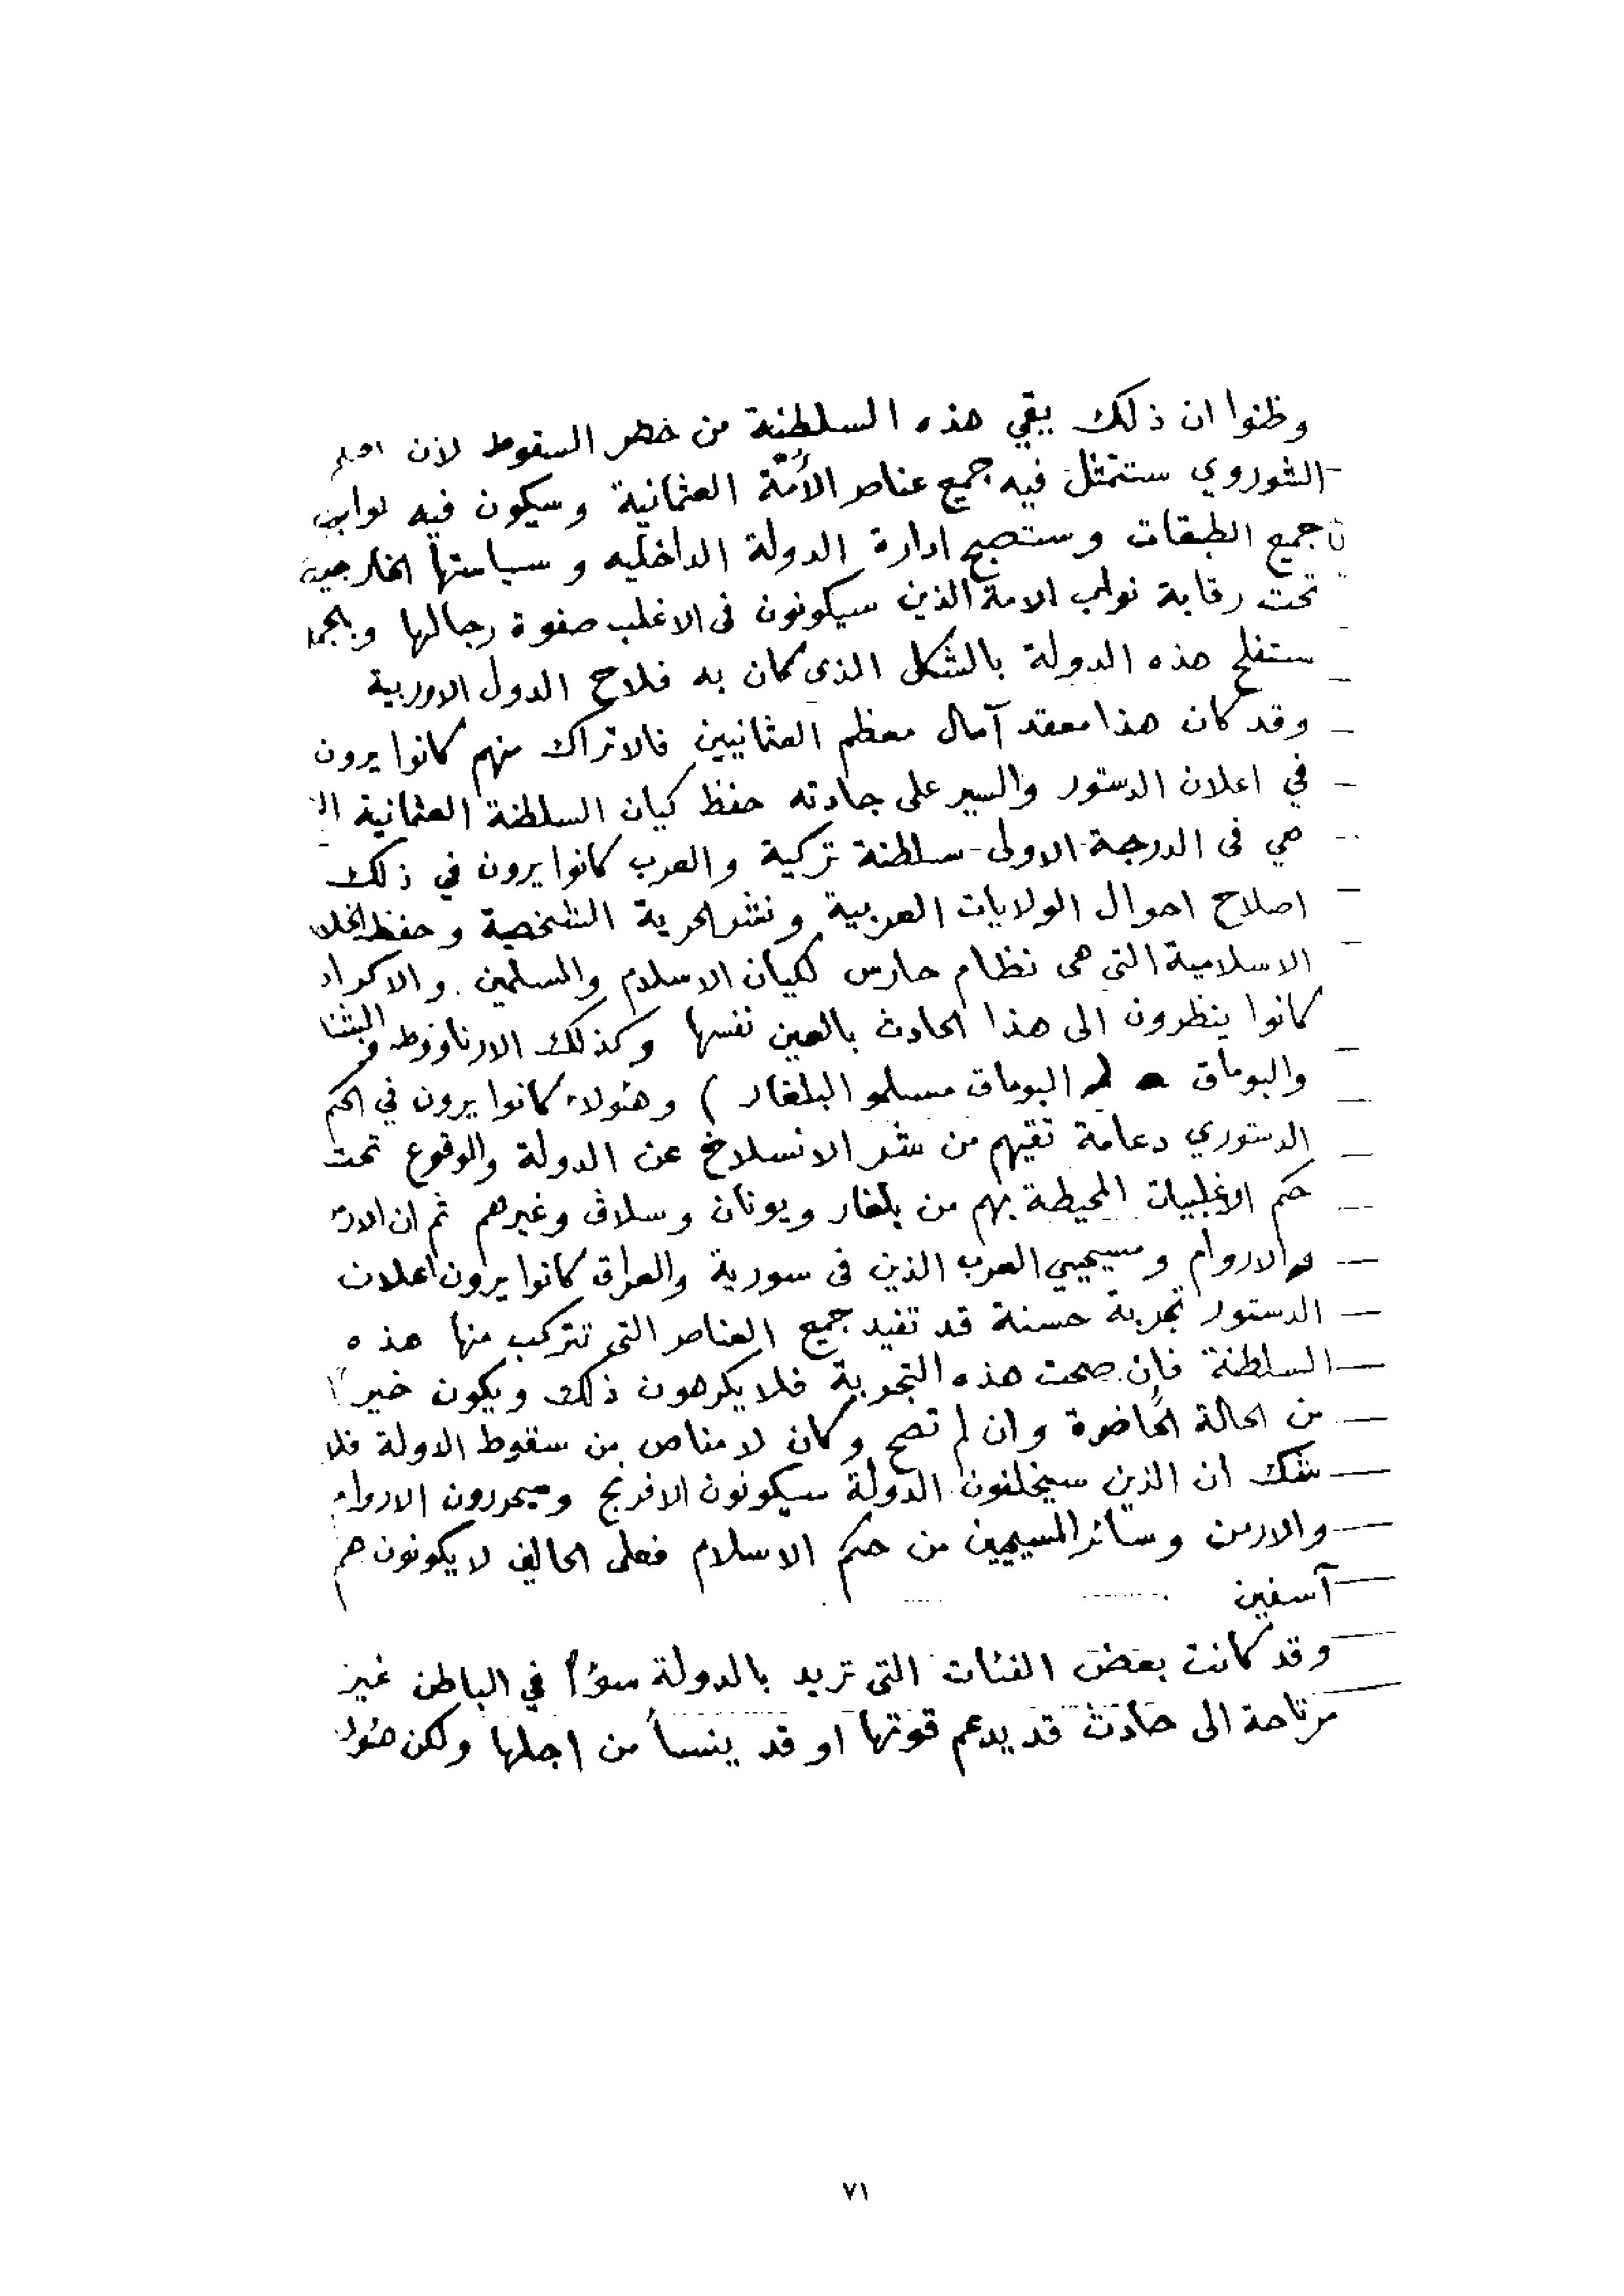 وظنوا ان ذلك يقي هذه السلطنة من خطر السقوط لأن
الشوروي ستتمثل فيه جميع عناصر الأمّة العثمانية وسيكون فيه نواب
جميع الطبقات وستصبح ادارة الدولة الداخلية وسياستها الخارجية
تحت رقابة نواب الامة الذين سيكونون فى الاغلب صفوة رجالها
ستفلح هذه الدولة بالشكل الذى كان به فلاح الدول الاوربية
وقد كان هذا معقد آمال معظم العثمانيين فالاتراك منهم كانوا يرون
في اعلان الدستور والسير على جادته حفظ كيان السلطنة العثمانية
هي فى الدرجة الاولى سلطنة تركية والعرب كانوا يرون في ذلك
اصلاح احوال الولايات العربية ونشر الحرية الشخصية وحفظ
الاسلامية التى هى نظام حارس لكيان الاسلام والمسلمين . والاكراد
كانوا ينظرون الى هذا الحادث بالعين نفسها وكذلك الارناؤوط
والبوماق البوماق مسلمو البلغار ) وهئولاء كانوا يرون في الحكم
الدستوري دعامة تقيهم من شر الانسلاخ عن الدولة والوقوع تحت
حكم الاغلبيات المحيطة بهم من بلغار ويونان وسلاف وغيرهم ثم ان
والاروام ومسيحيي العرب الذين فى سورية والعراق كانوا يرون اعلان
الدستور تجربة حسنة قد تفيد جميع العناصر التى تتركب منها هذه
السلطنة فإن صحت هذه التجربة فلا يكرهون ذلك ويكون خيراً
من الحالة الحاضرة وان لم تصح وكان لا مناص من سقوط الدولة فلا
شك ان الذين سيخلفون الدولة سيكونون الافرنج وسيحررون الاروام
والارمن وسائر المسيحيين من حكم الاسلام فعلى الحالين لا يكونون هم
آسفين
وقد كانت بعض الفئات التى تريد بالدولة سؤاً في الباطن غير
مرتاحة الى حادث قد يدعم قوتها او قد ينسأ من اجلها ولكن هئولاء
٧١